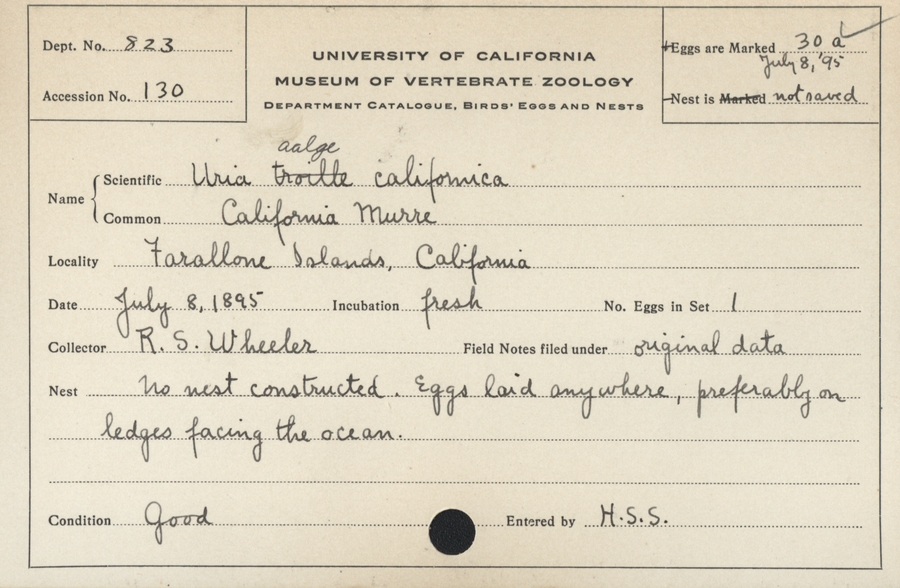 Dept. No. 823
Accession No. 130
UNIVERSITY OF CALIFORNIA
MUSEUM OF VERTEBRATE ZOOLOGY
DEPARTMENT CATALOGUE, BIRDS' EGGS AND NESTS
Eggs are Marked 30 a
July 8, '95
Nest is Marked not saved
aalge
Name { Scientific Uria troille californica
Common California Murre
Locality Farallone Islands, California
Date July 8, 1895 Incubation fresh No. Eggs in Set 1
Collector R. S. Wheeler Field Notes filed under original data
Nest No nest constructed. Eggs laid anywhere, preferably on
ledges facing the ocean.
Condition Good Entered by H.S.S.